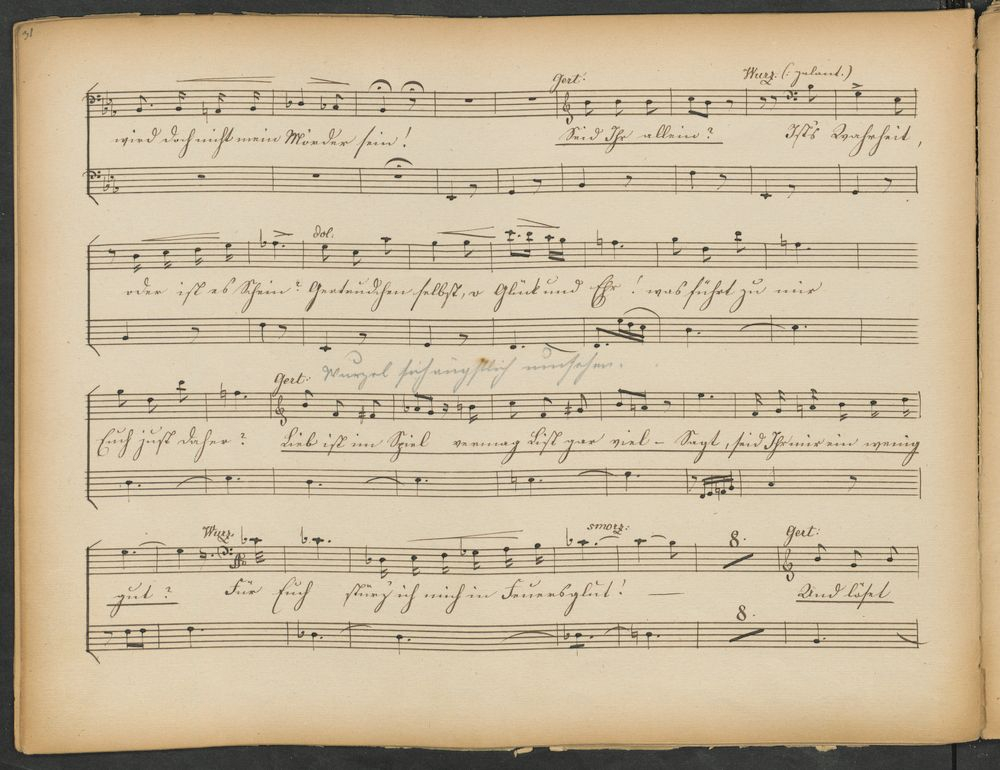 31
Gert: Wurz. (: galant.)
wird doch nicht mein Mörder sein! Seid Ihr allein? Ist's Wahrheit,
dol.
oder ist es Schein? Gertrudchen selbst, o Glück und Ehr! was führt zu mir
Wurzel sich ängstlich umsehen.
Gert:
Euch just daher? Lieb ist im Spiel vermag List gar viel – Sagt, seid Ihr mir ein wenig
Wurz. smorz: 8. Gert:
gut? Für Euch stürz ich mich in Feuersglut! — Und löset
8.